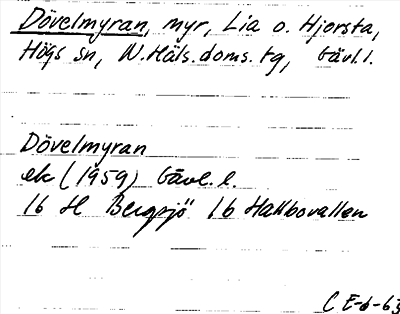 Dövelmyran, myr, Lia o. Hjorsta,
Högs sn, N. Häls. doms. tg, Gävl. l.
Dövelmyran
ek (1959) Gävl. l.
16 H Bergsjö 1b Hallbovallen
C E-6-63